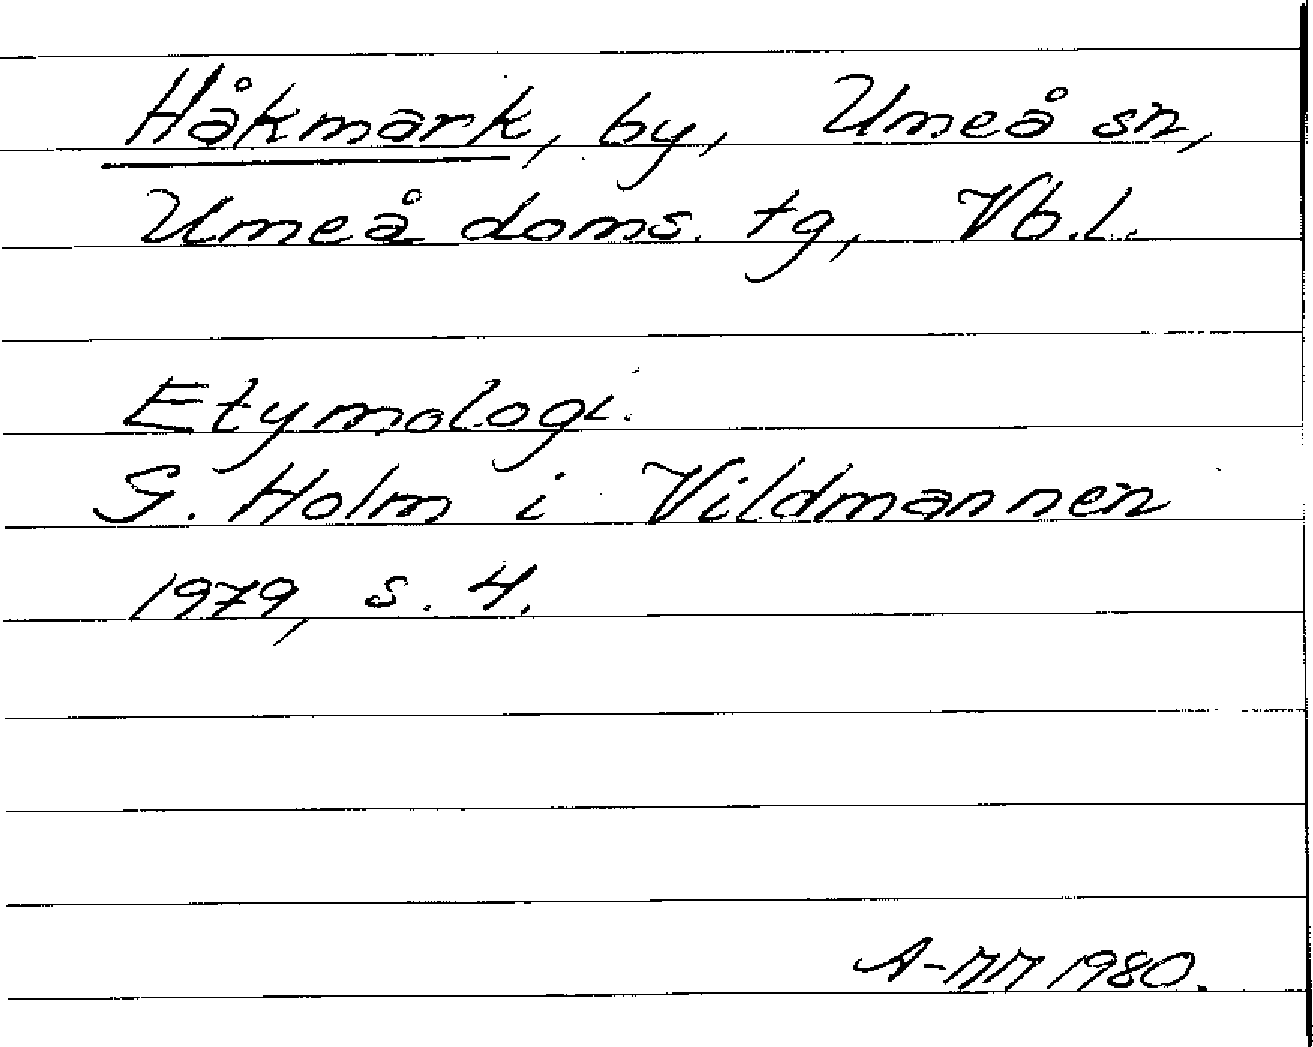 Håkmark, by, Umeå sn,
Umeå doms. tg, Vb.l.
Etymologi.
G. Holm i Vildmannen
1979, s. 4.
A-MM 1980.